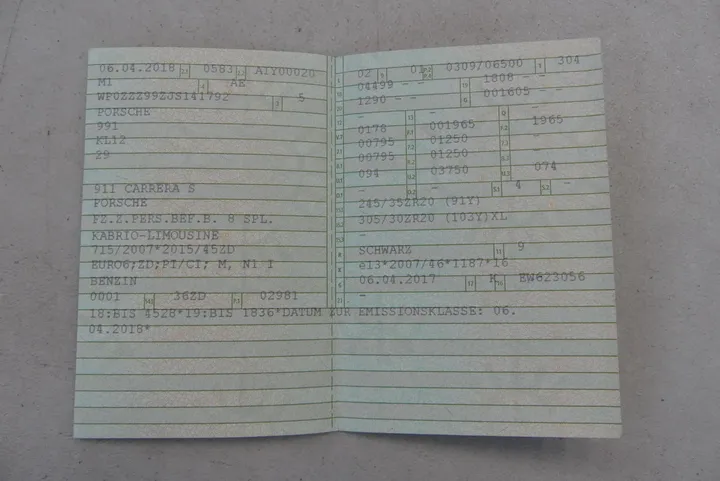 06.04.2018 0583 AIY00020
M1 AE
WP0ZZZ99ZJS141792 5
PORSCHE
991
KL12
29
911 CARRERA S
PORSCHE
FZ.Z.PERS.BEF.B. 8 SPL.
KABRIO-LIMOUSINE
715/2007*2015/45ZD
EURO6;ZD;PI/CI; M, N1 I
BENZIN
0001 36ZD 02981
02 01 0309/06500 304
04499 - - 1808 - -
1290 - - 001605 - -
- - -
0178 001965 1965
00795 01250 -
00795 01250 -
094 03750 074
- - 4 -
245/35ZR20 (91Y)
305/30ZR20 (103Y)XL
-
SCHWARZ 9
e13*2007/46*1187*16
06.04.2017 K EW623056
-
18:BIS 4528*19:BIS 1836*DATUM ZUR EMISSIONSKLASSE: 06.
04.2018*